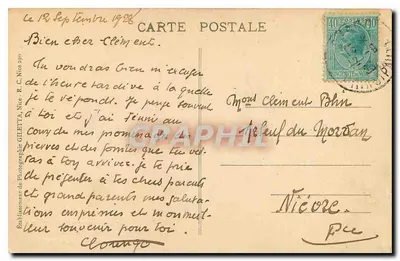 le 12 Septembre 1938
CARTE POSTALE
Bien cher Clément.
Tu voudras bien m'excuser
de l'heure tardive à la quelle
je te réponds. Je pense souvent
à toi et j'ai réuni au
cours de mes promenades des
pierres et des fontes que tu ver-
ras à ton arrivée. Je te prie
de présenter à tes chers parents
et grand parents mes saluta-
tions empressées et mon meil-
leur souvenir pour toi.
Mons Clément
du Morvan
Nièvre
Établissements de Photographie GILETTA, Nice - R. C. Nice
CPAPHIL